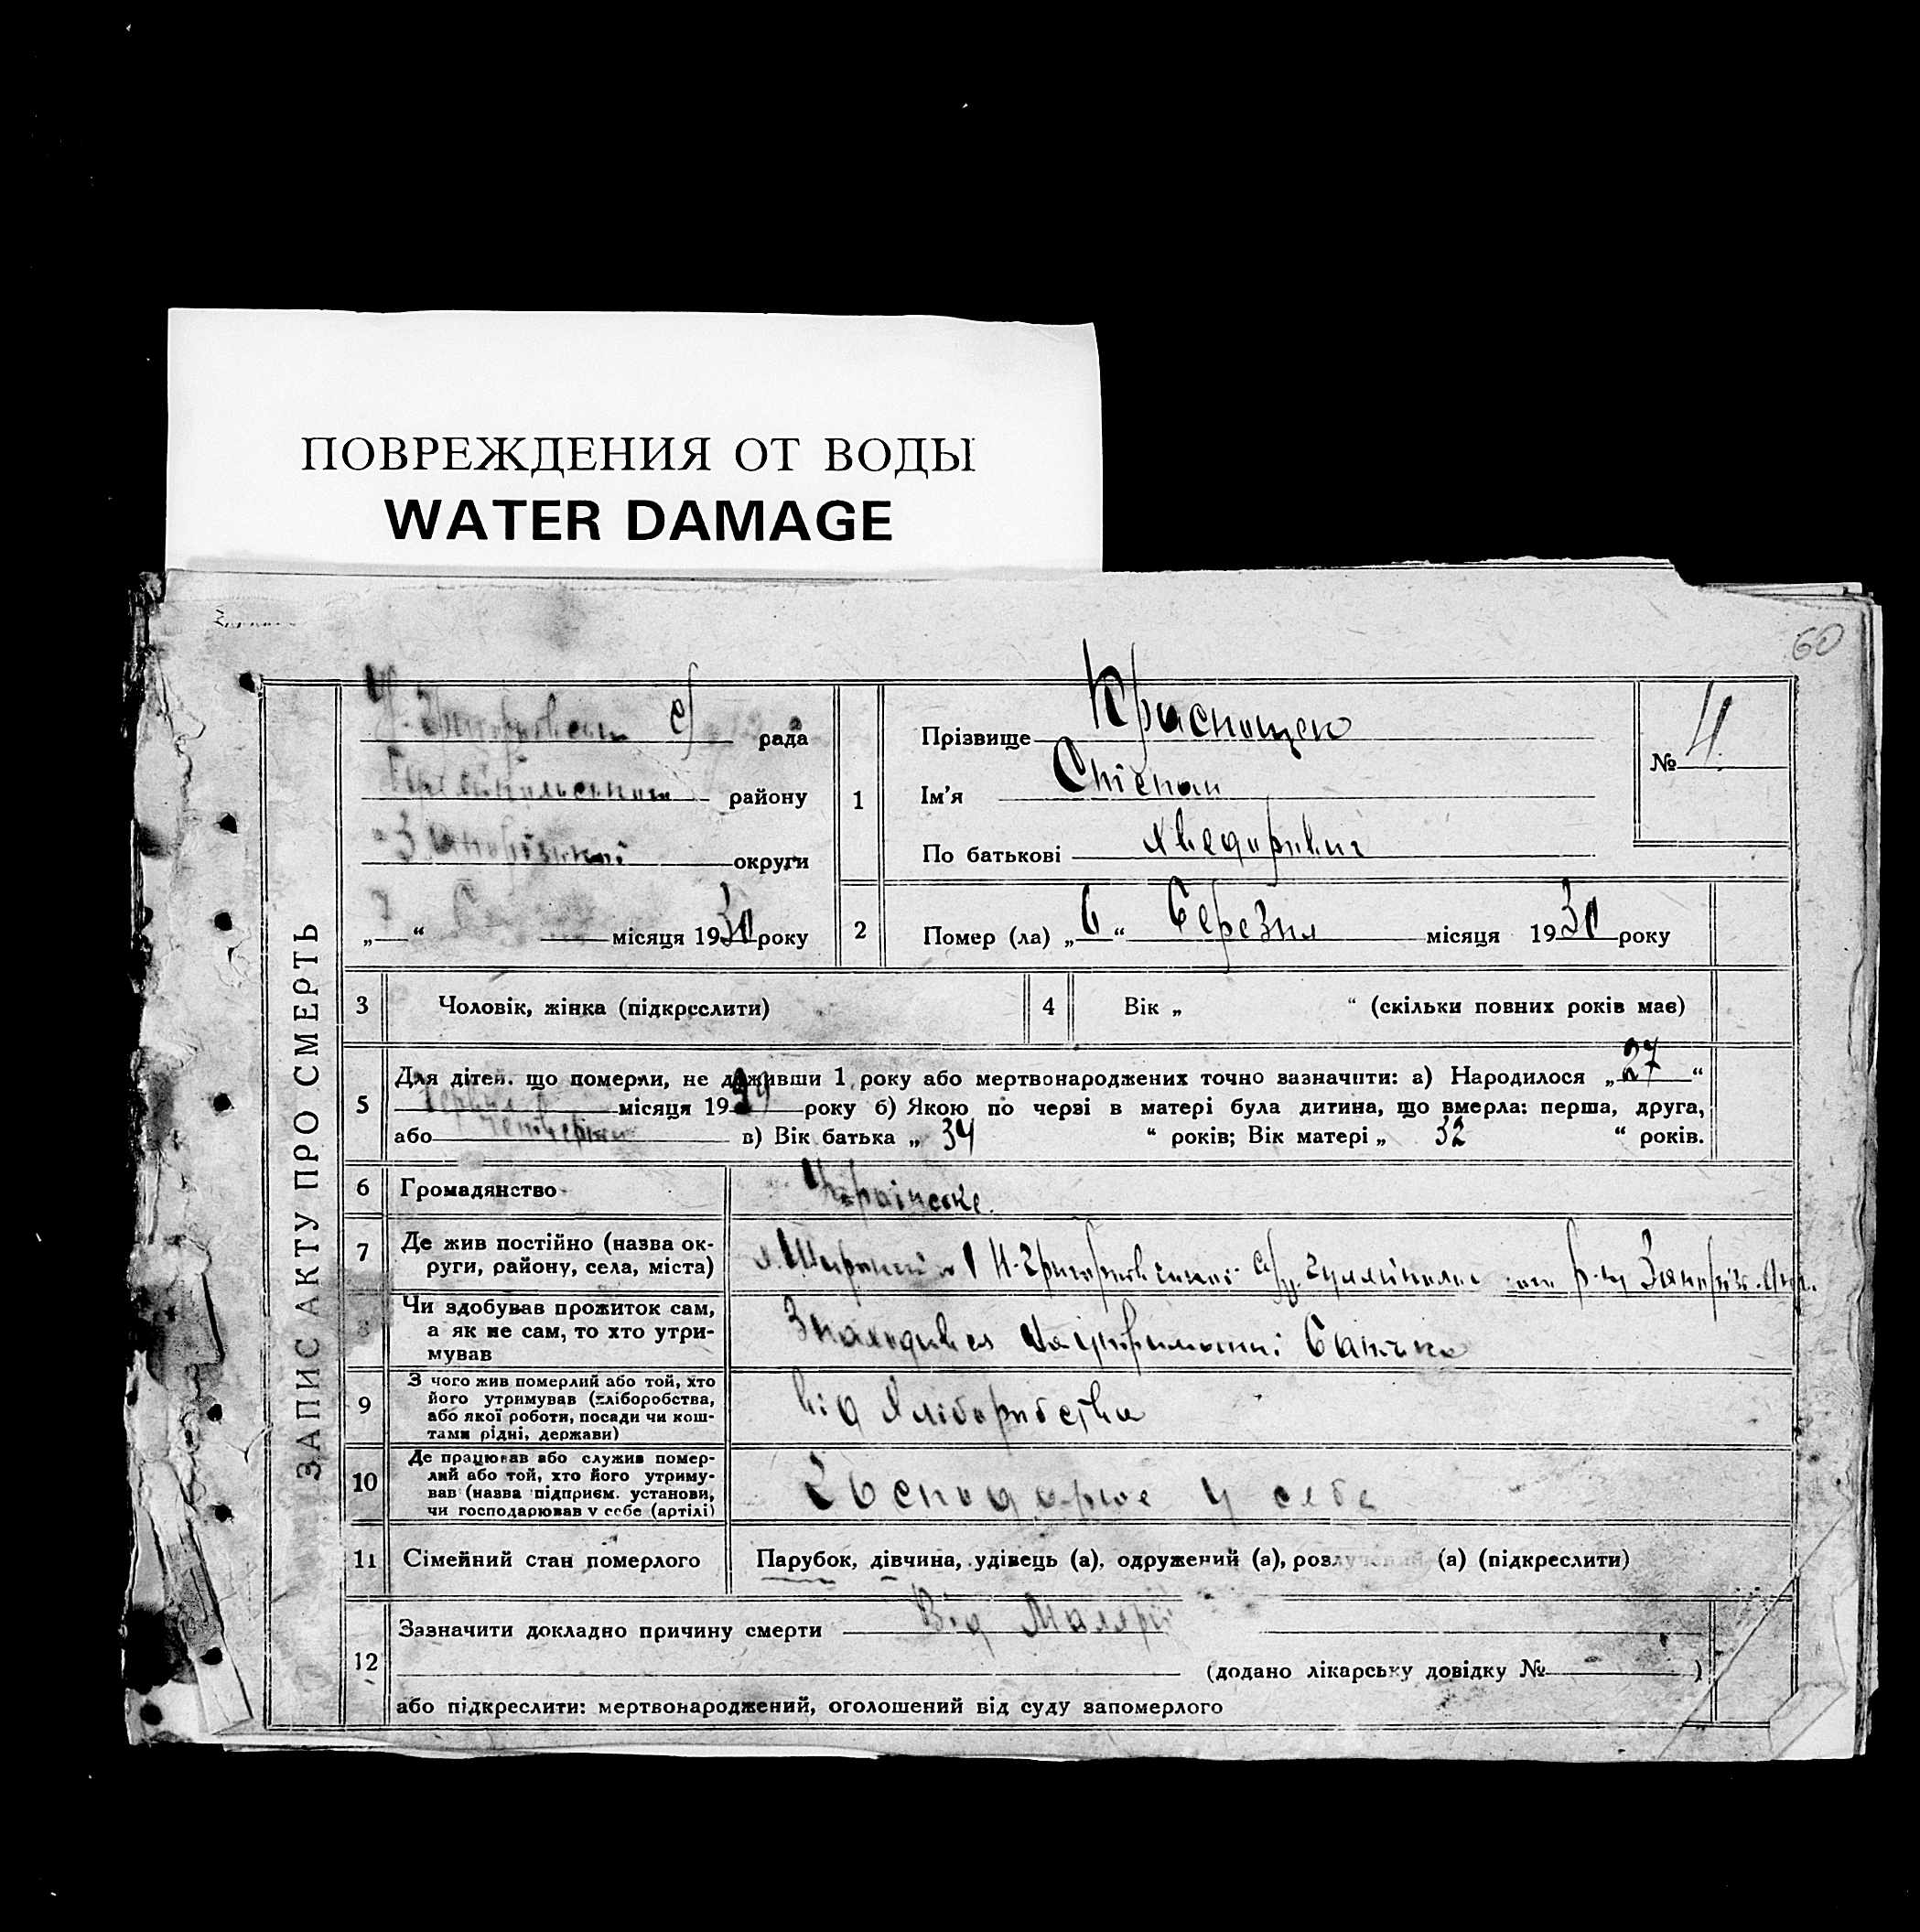 ПОВРЕЖДЕНИЯ ОТ ВОДЫ
WATER DAMAGE
60
ЗАПИС АКТУ ПРО СМЕРТЬ
с/ рада
району
округи
„ “ місяця 1930 року
1
Прізвище
Ім'я Степан
По батькові Хведорович
№ 4
2
Помер (ла) „6“ Березня місяця 1930 року
3
Чоловік, жінка (підкреслити)
4
Вік „ “ (скільки повних років має)
5
Для дітей. що померли, не доживши 1 року або мертвонароджених точно зазначити: а) Народилося „27“
Червня місяця 1929 року б) Якою по черві в матері була дитина, що вмерла: перша, друга,
або четверта в) Вік батька „ 34 “ років; Вік матері „ 32 “ років.
6
Громадянство Українське.
7
Де жив постійно (назва ок-
руги, району, села, міста)
Н-Григорівської с/р. Гуляйпільс р-ну Запоріз. Окр.
8
Чи здобував прожиток сам,
а як не сам, то хто утри-
мував
Знаходився на утриманні Батька
9
З чого жив померлий або той, хто
його утримував (хліборобства,
або якої роботи, посади чи кош-
тами рідні, держави)
від Хліборобства
10
Де працював або служив помер-
лий або той, хто його утриму-
вав (назва підприєм. установи,
чи господарював у себе (артілі)
у себе
11
Сімейний стан померлого
Парубок, дівчина, удівець (а), одружений (а), розлучений (а) (підкреслити)
12
Зазначити докладно причину смерти Від Малярії
(додано лікарську довідку № )
або підкреслити: мертвонароджений, оголошений від суду запомерлого